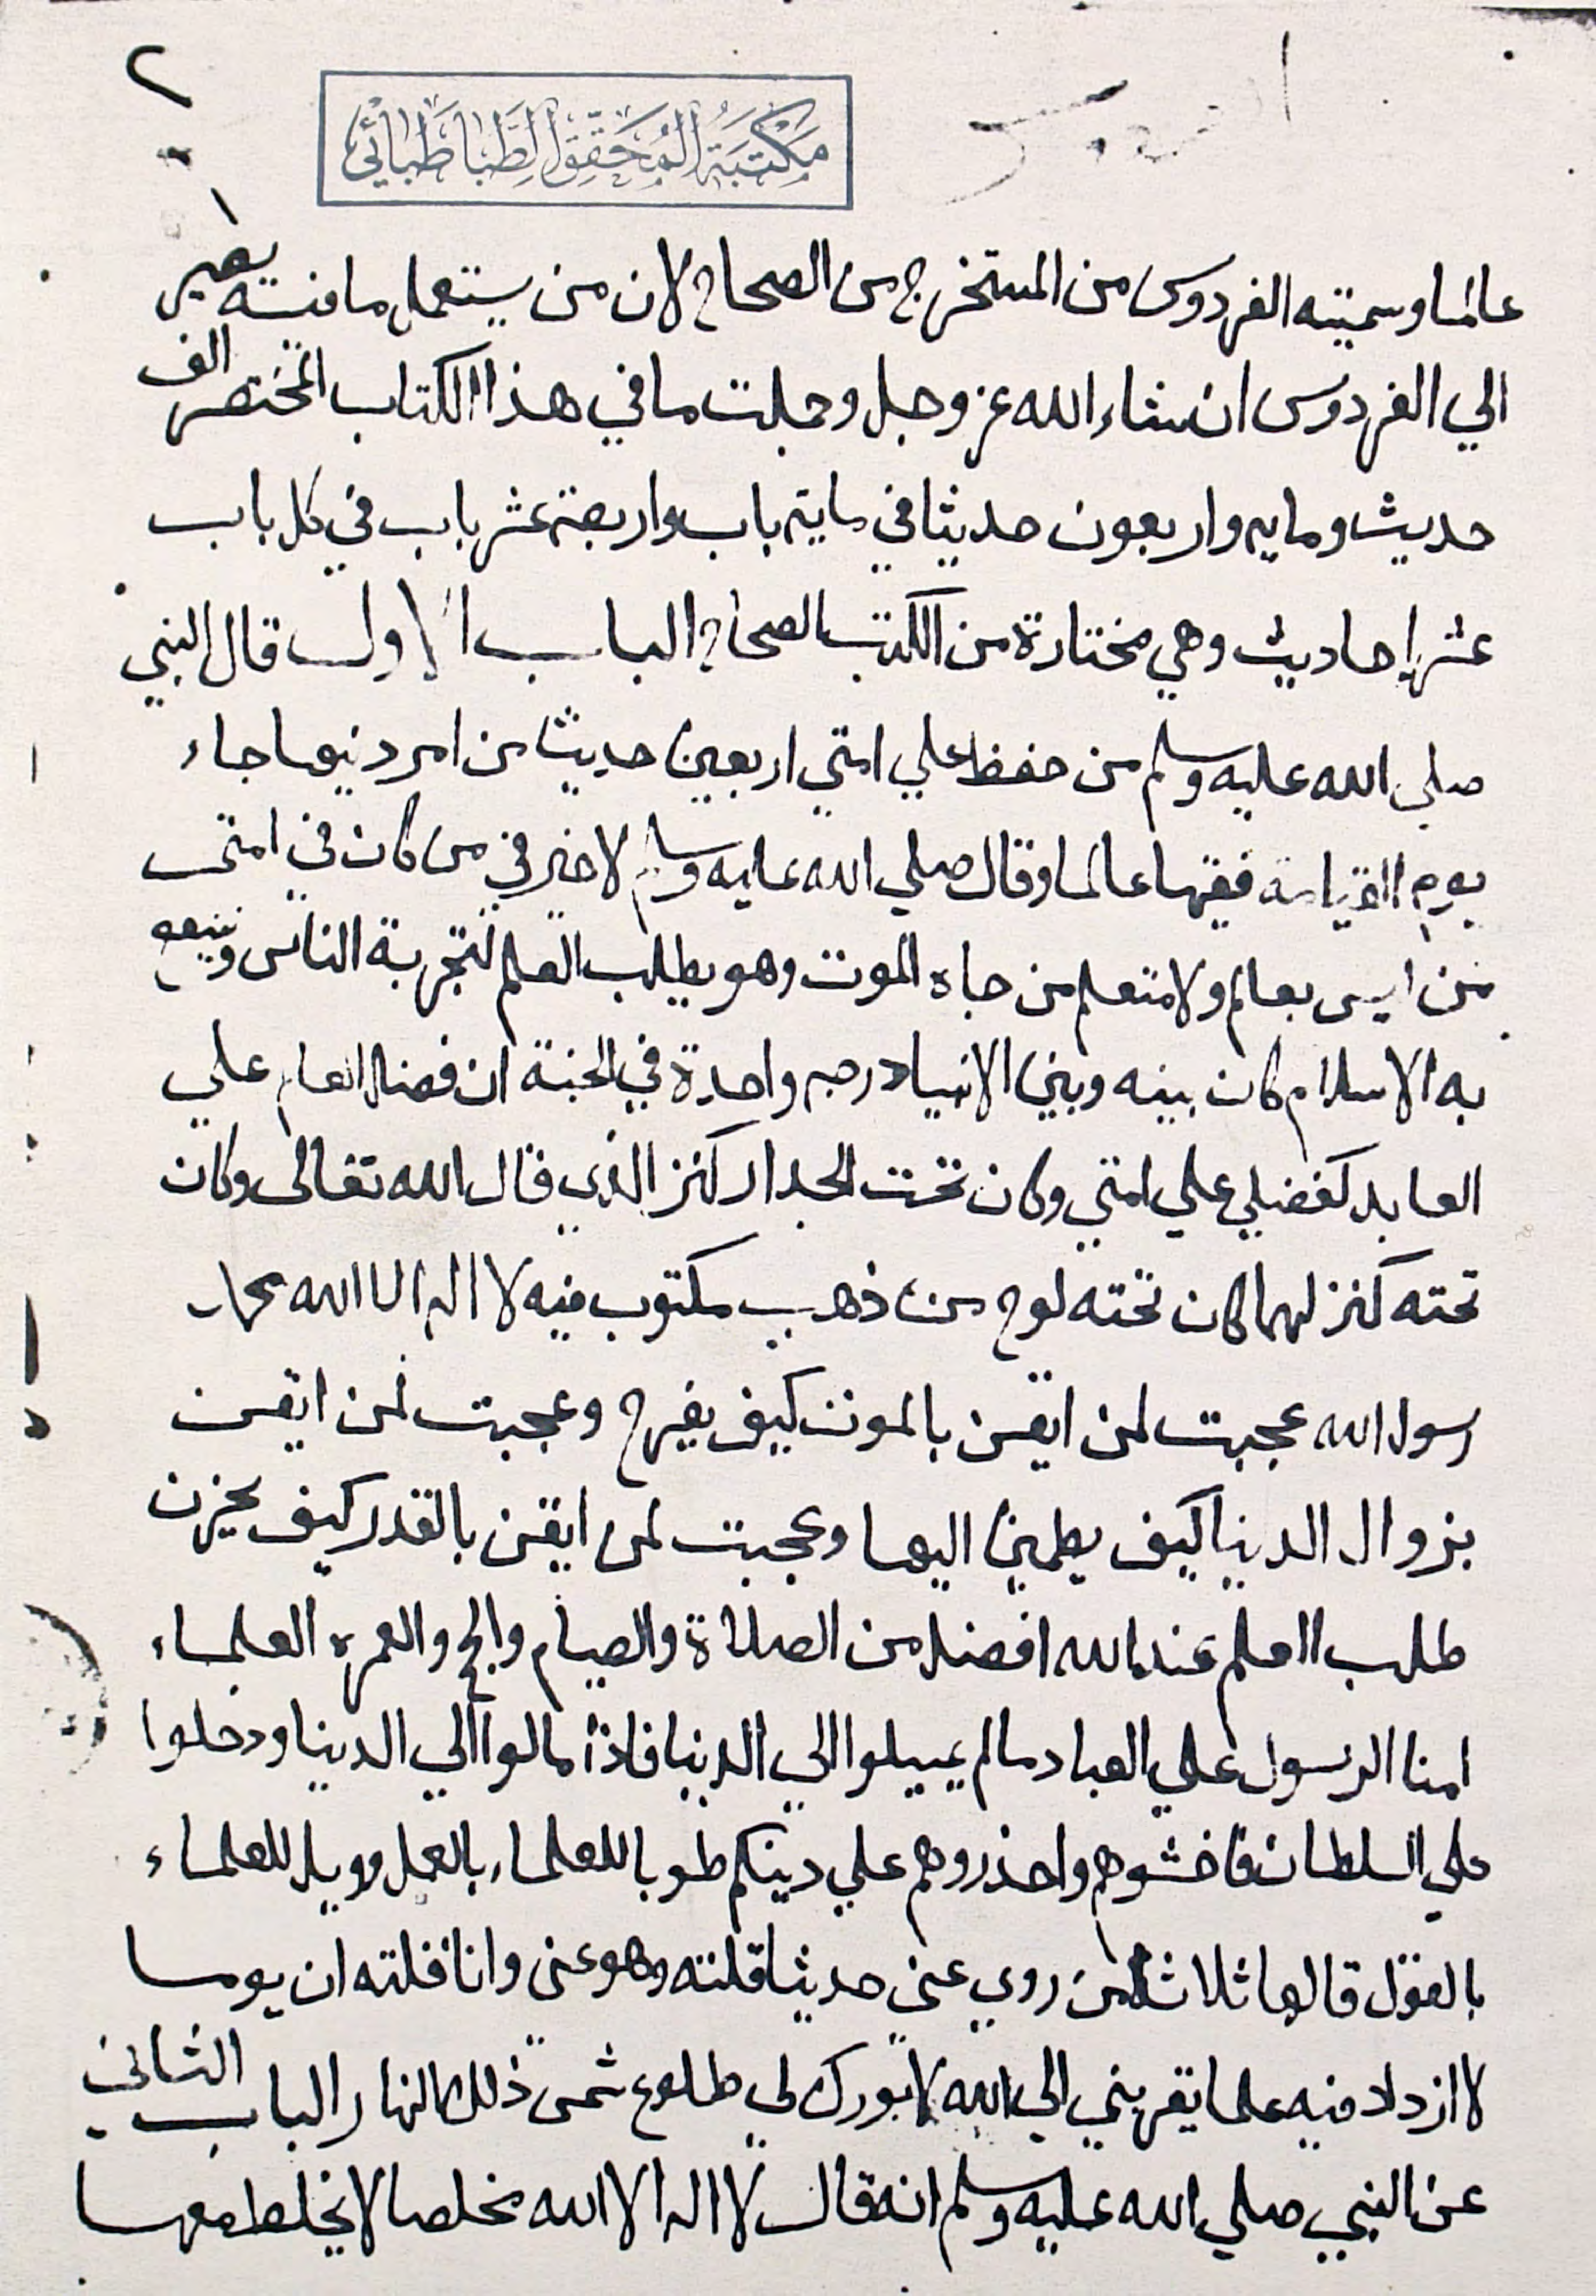 ٢
مكتبة المحقق الطباطبائي
عالما وسميته الفردوس من المستخرج من الصحاح لان من يستعمل ما فيه يصير
الي الفردوس ان شاء الله عز وجل وجملت ما في هذا الكتاب المختصر الف
حديث ومايه واربعون حديثا في ماية باب واربعة عشر باب في كل باب
عشر احاديث وهي مختارة من الكتب الصحاح الباب الاول قال النبي
صلي الله عليه وسلم من حفظ علي امتي اربعين حديثا من امر دنيها جاء
يوم القيامة فقيها عالما وقال صلي الله عليه وسلم لا خير في من كان في امتي
من ليس بعالم ولا متعلم من جاه الموت وهو يطلب العلم لتجربة الناس
به الاسلام كان بينه وبين الانبياء درجه واحدة في الجنة ان فضل العالم علي
العابد كفضلي علي امتي وكان تحت الجدار كنز الذي قال الله تعالى وكان
تحته كنز لهما كان تحته لوح من ذهب مكتوب فيه لا اله الا الله محمد
رسول الله عجبت لمن ايقن بالموت كيف يفرح وعجبت لمن ايقن
بزوال الدنيا كيف يطمين اليها وعجبت لمن ايقن بالقدر كيف يحزن
طلب العلم عند الله افضل من الصلاة والصيام والحج والعمره العلماء
امنا الرسول علي العباد مالم يميلوا الي الدنيا فاذا مالوا الي الدنيا ودخلوا
علي السلطان فاخشوهم واحذروهم علي دينكم طوبا للعلماء بالعمل وويل للعلماء
بالقول قالها ثلاثا من روي عني حديثا قلته وهو عني وانا قلته ان يوما
لا ازداد فيه علما يقربني الي الله لا بورك لي طلوع شمس ذلك النهار الباب الثاني
عن النبي صلي الله عليه وسلم انه قال لا اله الا الله مخلصا لا يخلط معها